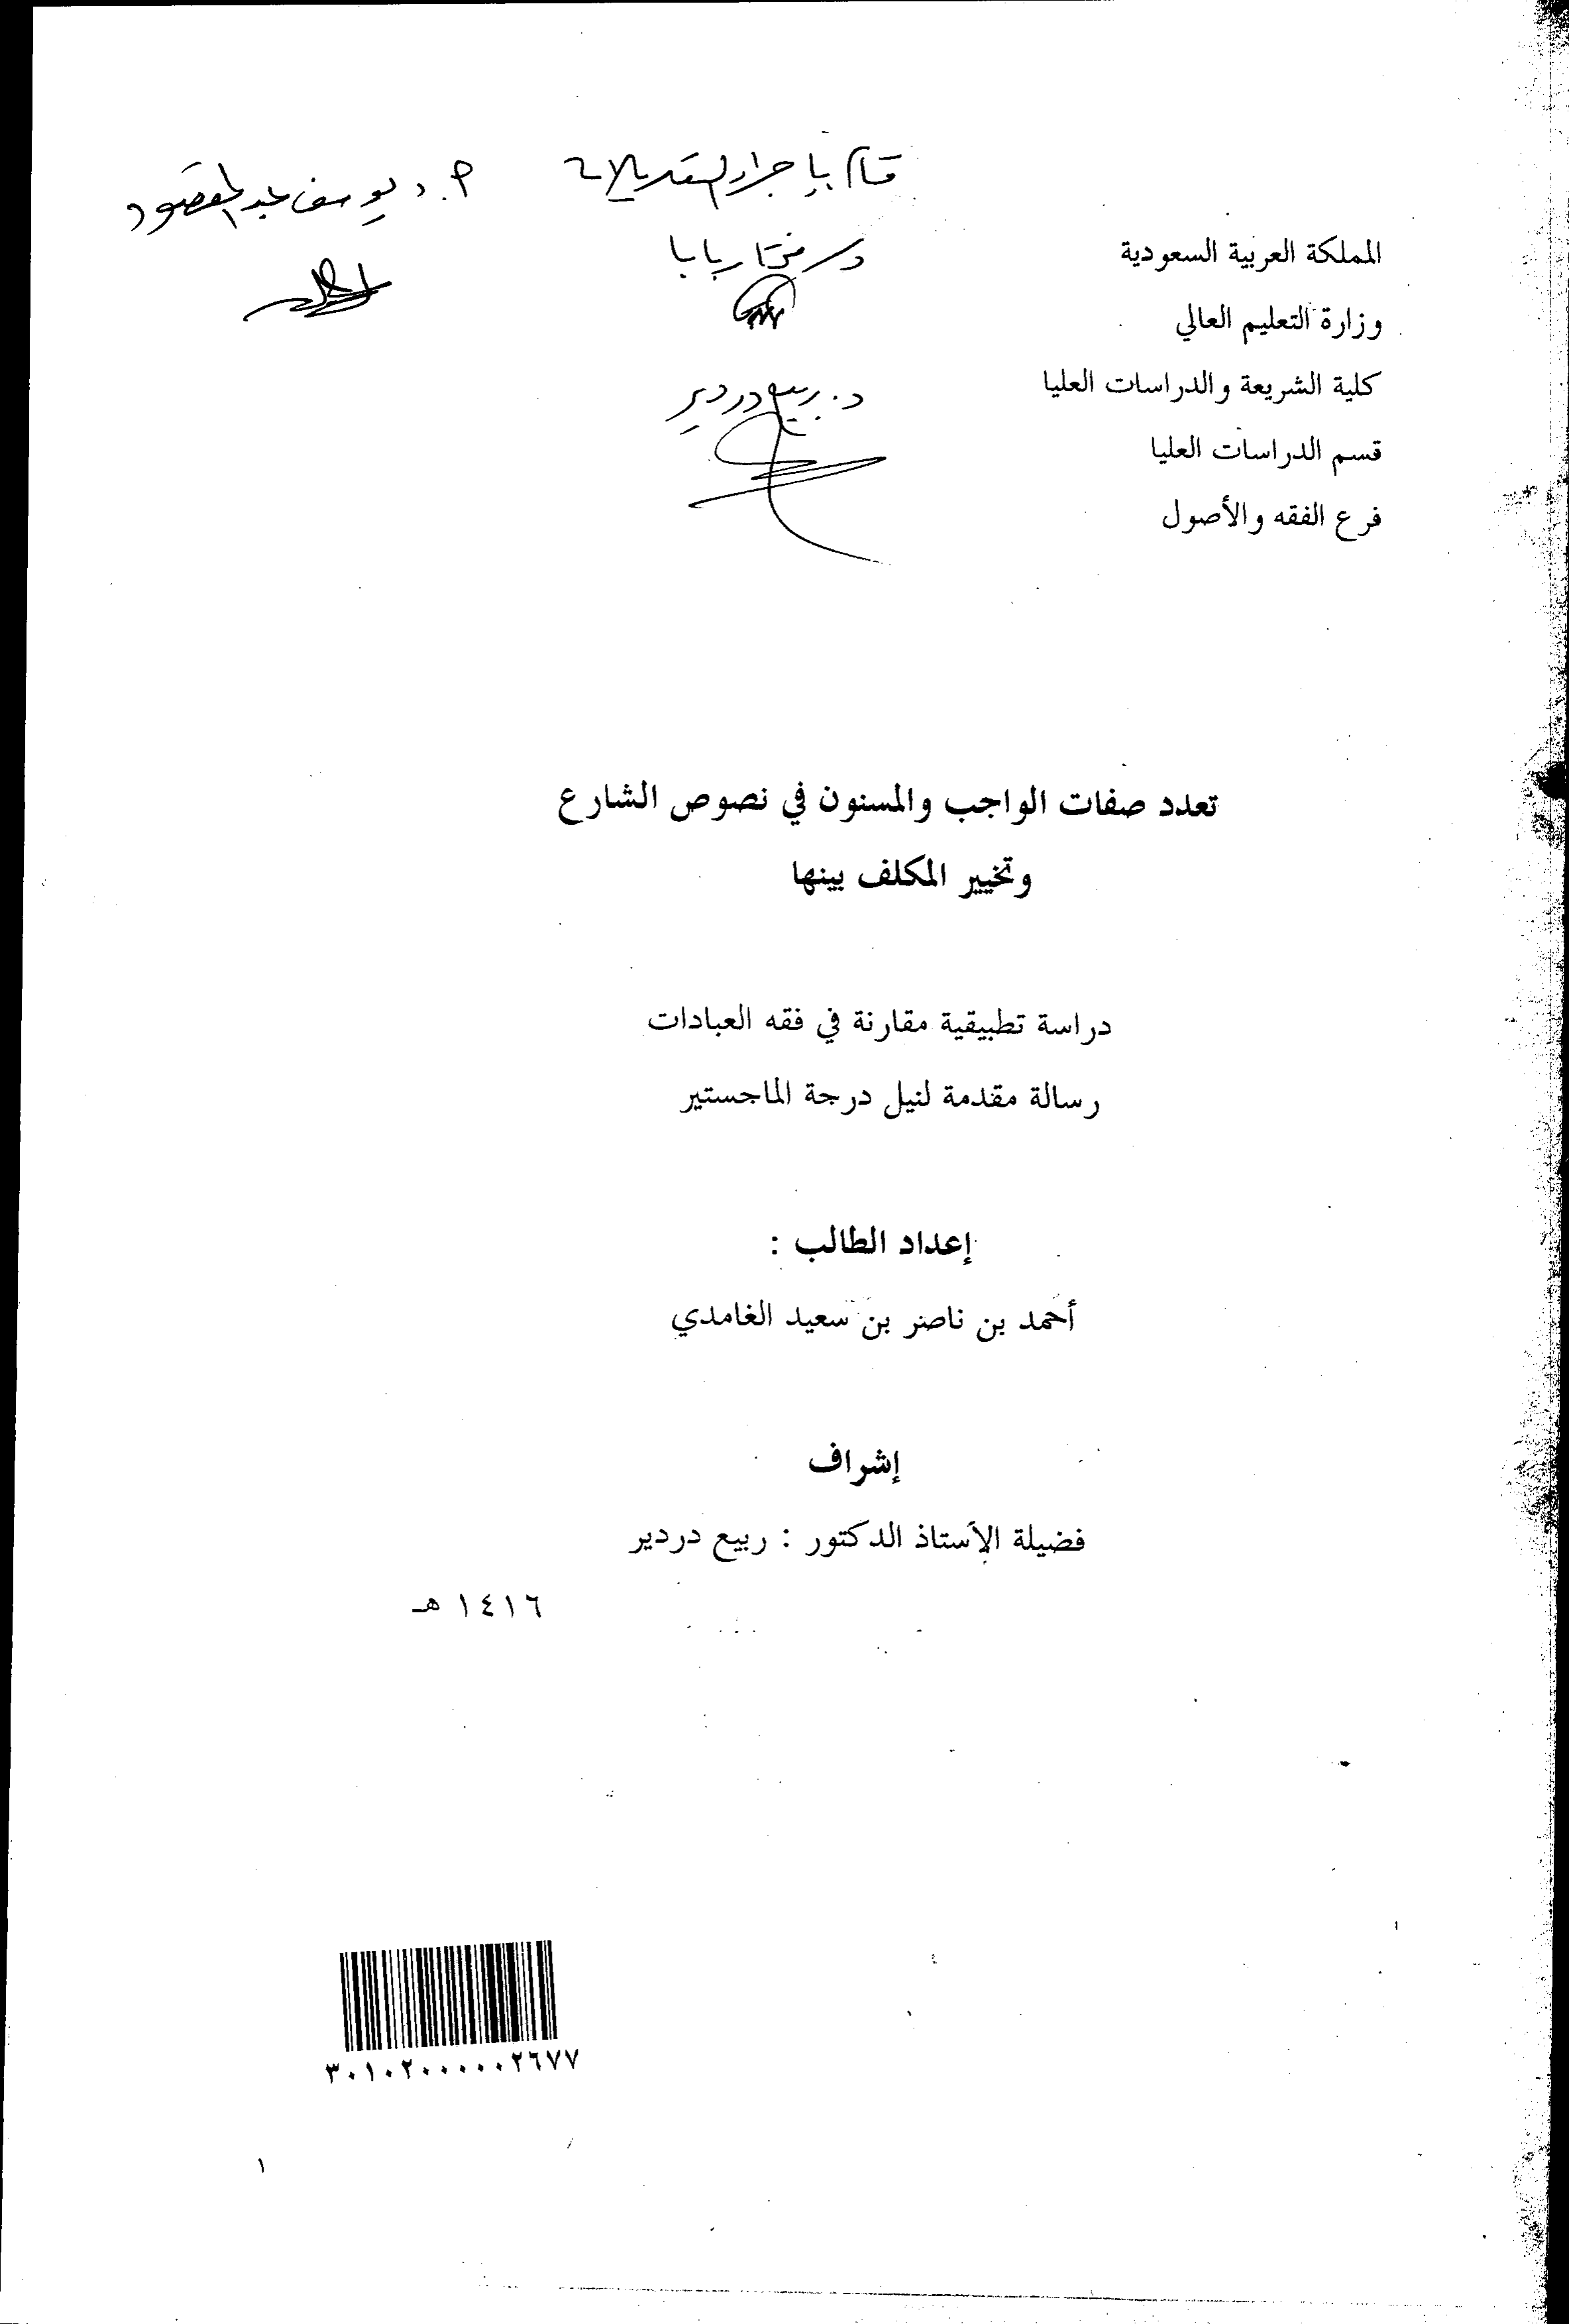 قام بإجراء التعديلات
أ.د يوسف عبد المقصود
د. مختار بابا
د. ربيع دردير
المملكة العربية السعودية
وزارة التعليم العالي
كلية الشريعة والدراسات العليا
قسم الدراسات العليا
فرع الفقه والأصول
تعدد صفات الواجب والمسنون في نصوص الشارع
وتخيير المكلف بينها
دراسة تطبيقية مقارنة في فقه العبادات
رسالة مقدمة لنيل درجة الماجستير
إعداد الطالب :
أحمد بن ناصر بن سعيد الغامدي
إشراف
فضيلة الأستاذ الدكتور : ربيع دردير
١٤١٦ هـ
٣٠١٠٢٠٠٠٠٠٢٦٧٧
١